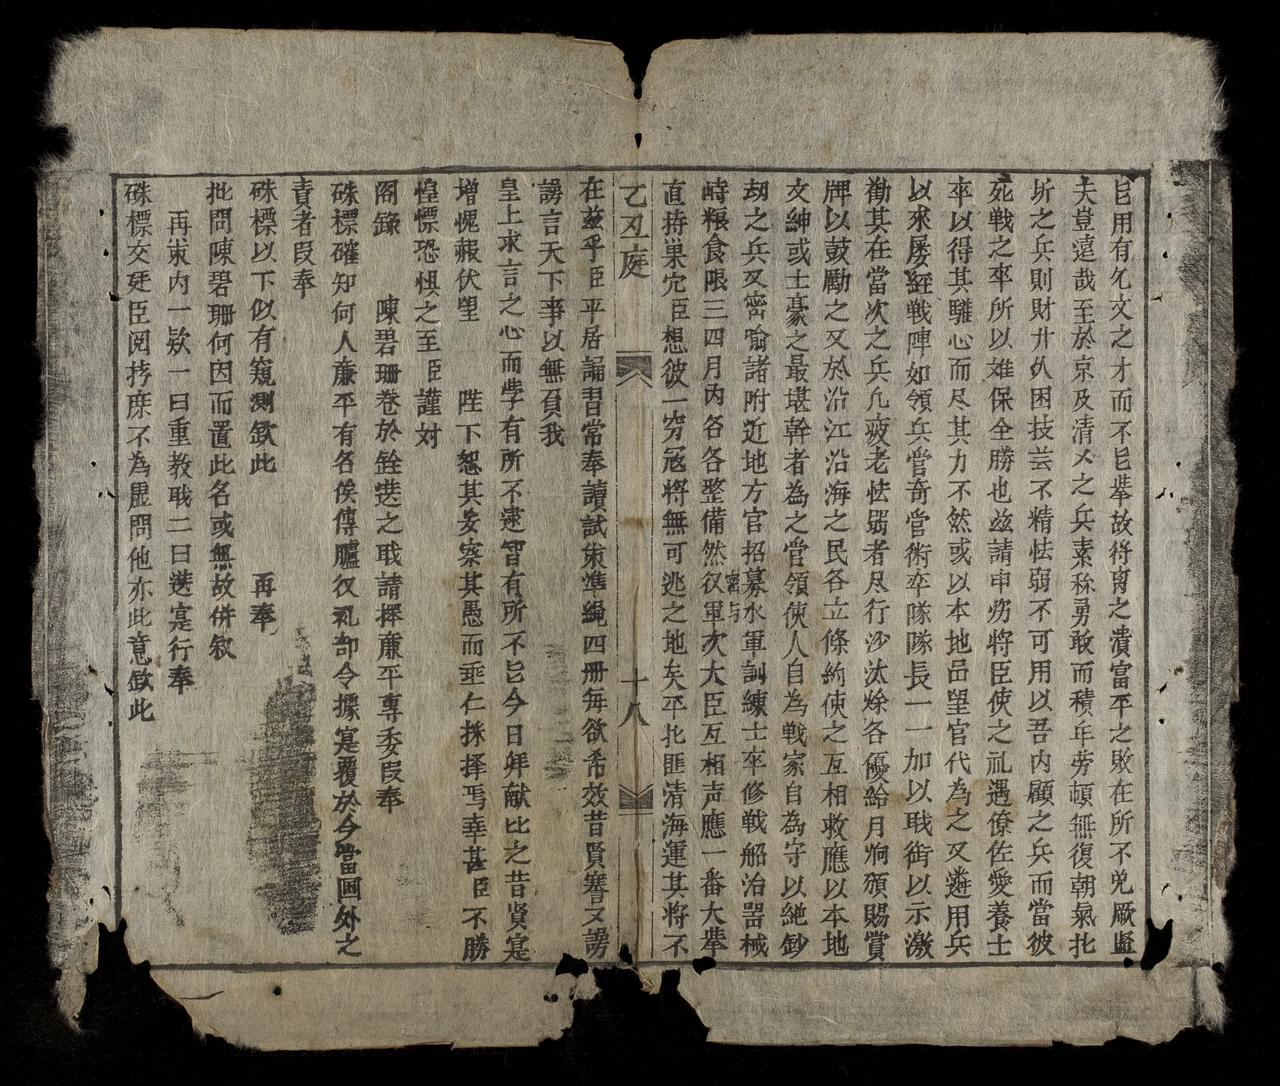 㠯用有乞文之才而不㠯㪯故将甯之潰富平之敗在所不免厥監
夫豈遠哉至於京及清乂之兵素称勇敢而積年劳頓無復朝氣北
圻之兵則財廾从困技芸不精怯弱不可用以吾内顧之兵而當彼
死戦之卒所以难保全勝也兹請申疠将臣使之礼遇僚佐愛養士
卒以得其驩心而尽其力不然或以本地品望官代為之又遴用兵
以來屡經戦陣如領兵管奇管術卒隊隊長一一加以戢銜以示激
勧其在當次之兵凢疲老怯弱者尽行沙汰除各優給月餉頒賜賞
牌以鼓勵之又於沿江沿海之民各立條約使之互相救應以本地
文紳或士豪之最堪幹者為之管領使人自為戦家自為守以絶鈔
刼之兵又密喻諸附近地方官招募水軍訓練士卒修戦船治噐械
峙粮食限三四月内各各整備然後密与軍次大臣互相声應一番大㪯
直持巣穴臣想彼一穷冦将無可逃之地矣平北匪清海運其将不
乙丑庭 十八
在兹乎臣平居誦習常奉讀試策準繩四册毎欲希效昔賢騫文謗
謗言天下事以無負我
皇上求言之心而學有所不逮智有所不㠯今日拜献比之昔賢寔
增愧赧伏望 陛下恕其妄察其愚而乖仁採擇焉幸甚臣不勝
惶慄恐惧之至臣謹対
閣錄 陳碧珊卷於銓选之戢請擇亷平專委叚奉
硃標確知何人亷平有名俟傳臚仅礼部令據寔覆於今當囬外之
責者叚奉
硃標以下似有窺測欽此 再奉
批問陳碧珊何因而置此名或無故併叙
再策内一欵一曰重教戢二曰选寔行奉
硃標交廷臣閲拷庶不為虚問他亦此意欽此